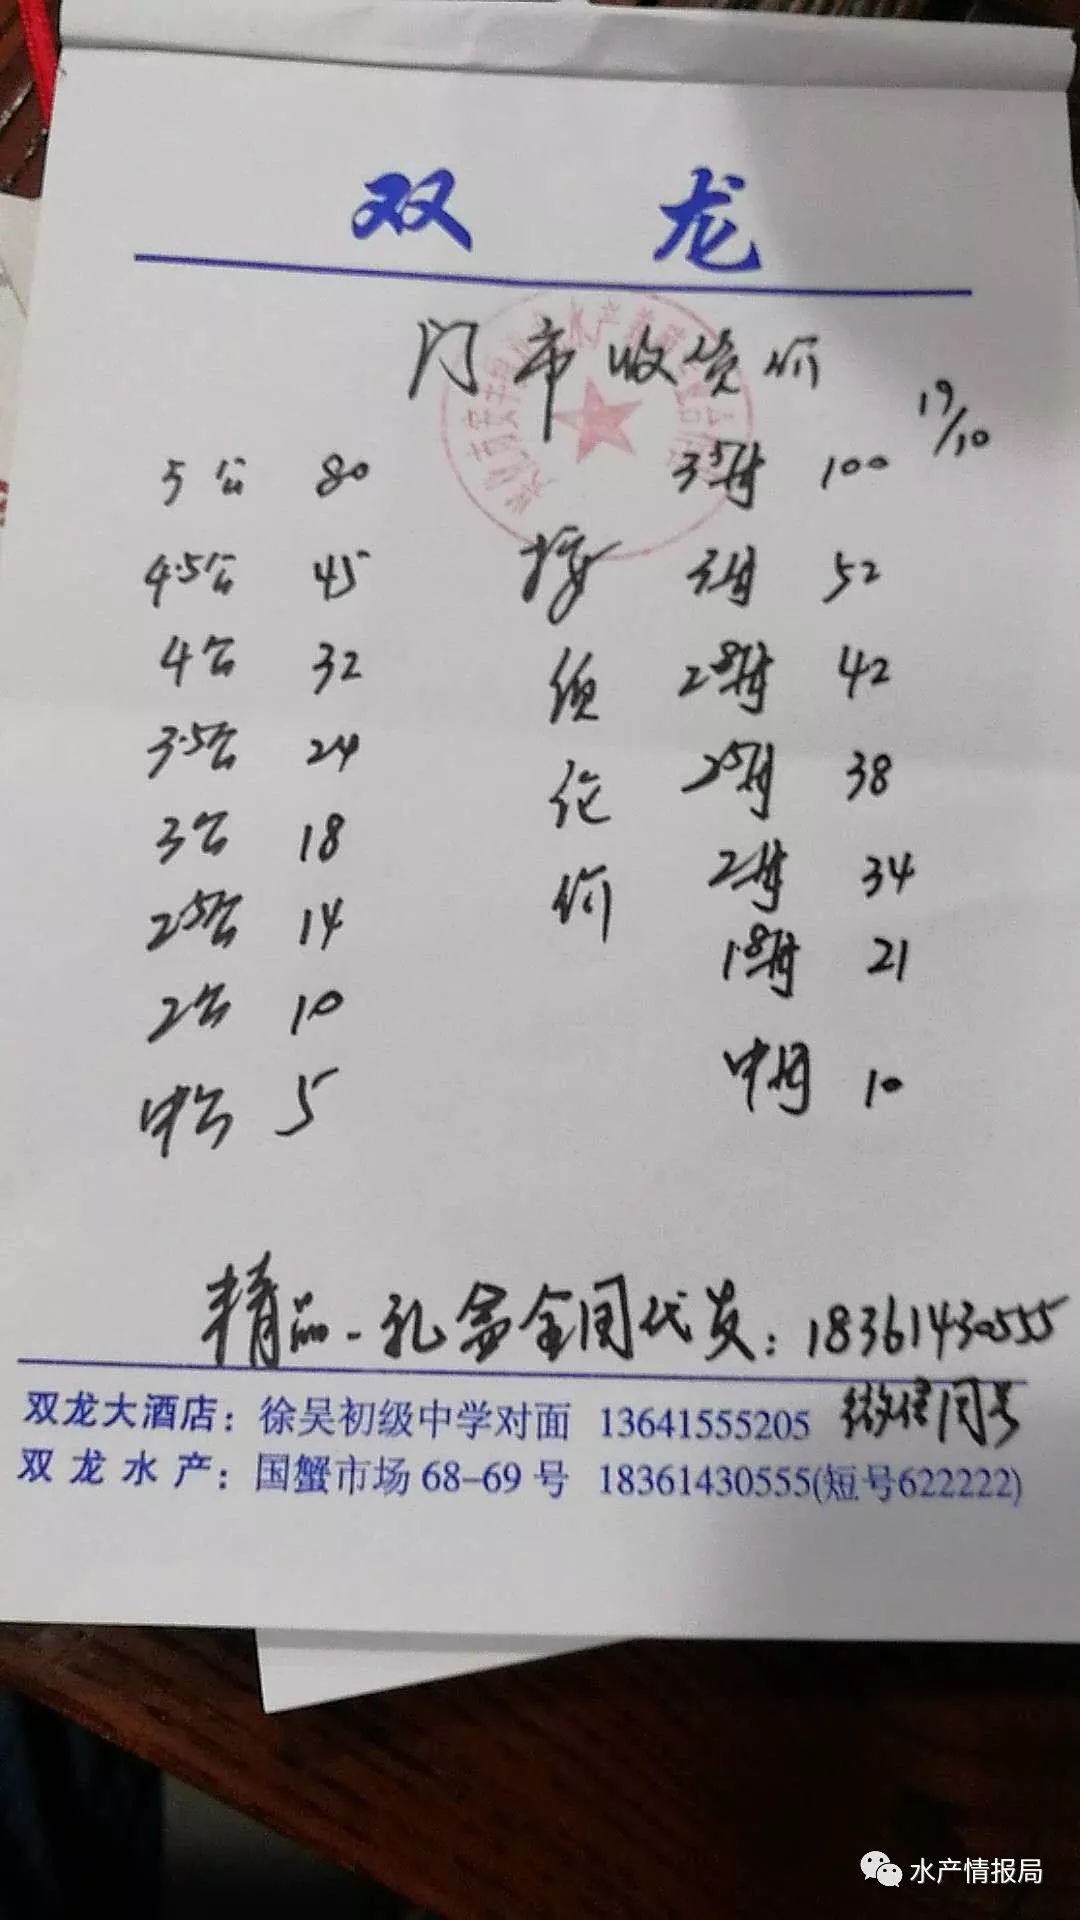 双 龙
门市收货价
19/10
5公 80 3.5母 100
4.5公 45 3母 52
4公 32 2.8母 42
3.5公 24 2.5母 38
3公 18 2母 34
2.5公 14 1.8母 21
2公 10 中母 10
中公 5
按质论价
精品-礼盒全国代发:18361430555
微信同号
双龙大酒店:徐吴初级中学对面 13641555205
双龙水产:国蟹市场68-69号 18361430555(短号622222)
水产情报局